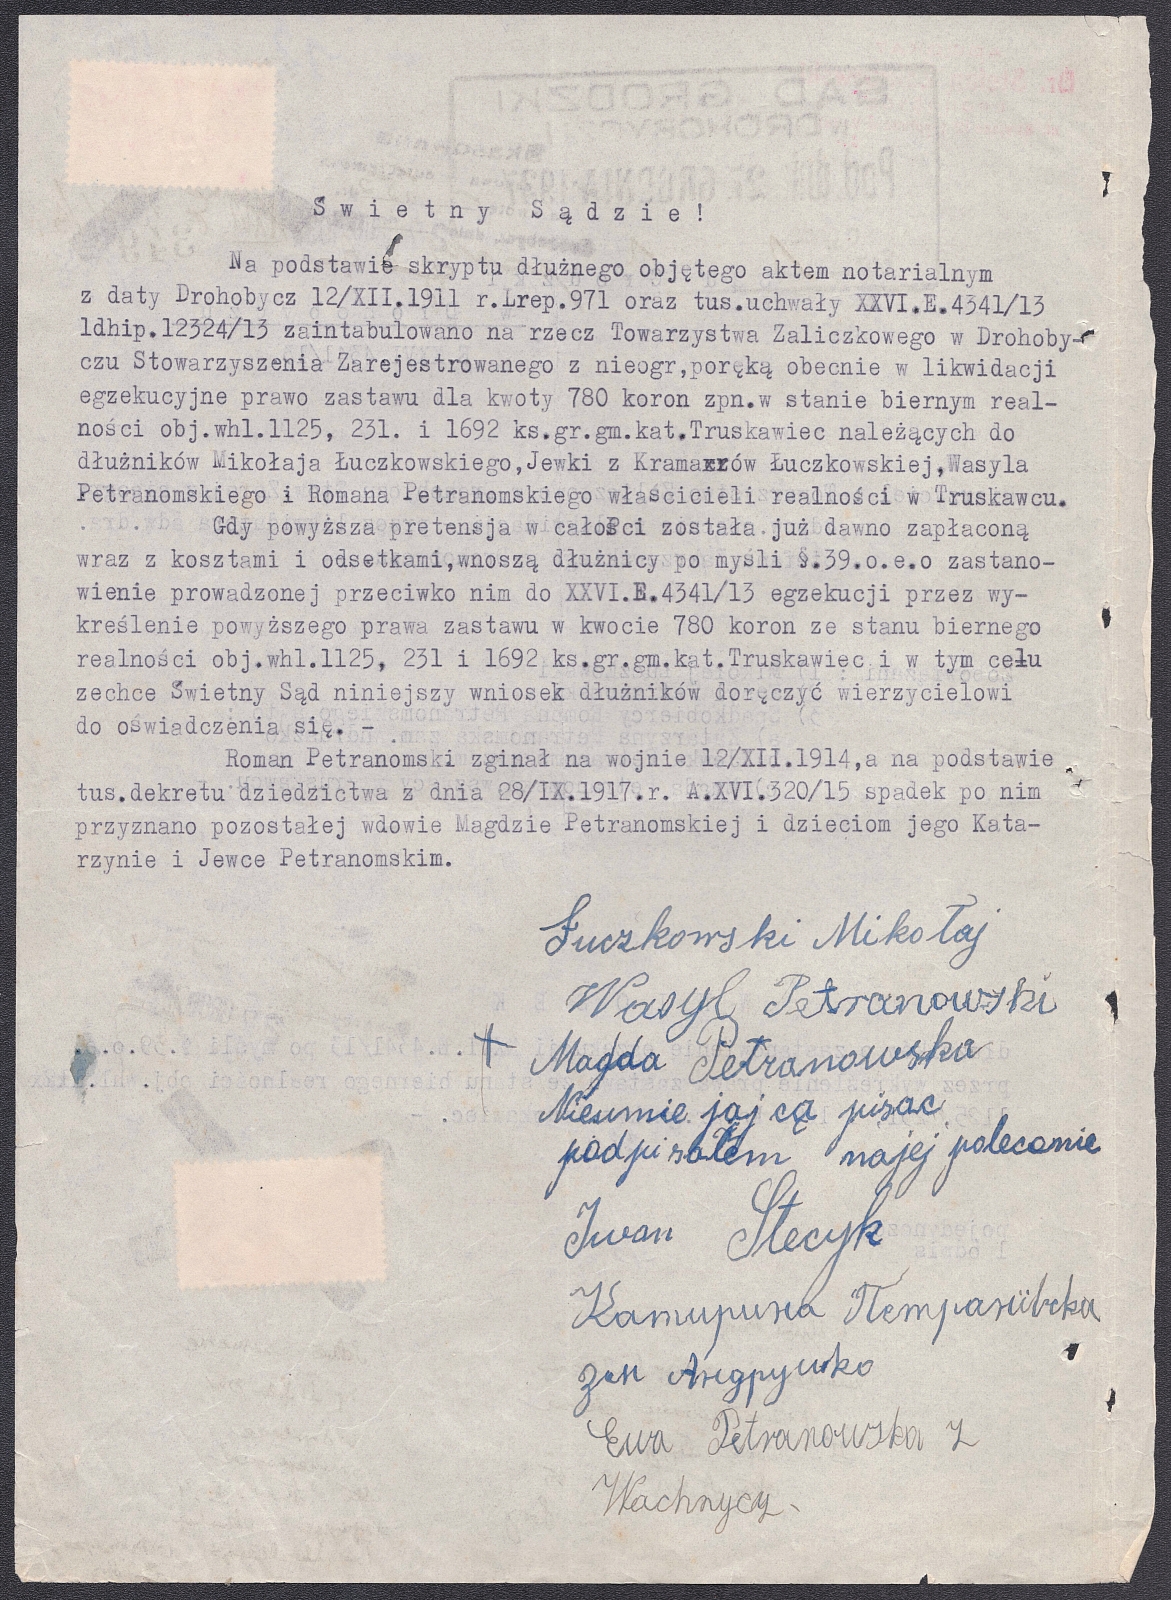 Świetny Sądzie!
Na podstawie skryptu dłużnego objętego aktem notarialnym
z daty Drohobycz 12/XII.1911 r.Lrep.971 oraz tus.uchwały XXVI.E.4341/13
ldhip.12324/13 zaintabulowano na rzecz Towarzystwa Zaliczkowego w Drohoby-
czu Stowarzyszenia Zarejestrowanego z nieogr,poręką obecnie w likwidacji
egzekucyjne prawo zastawu dla kwoty 780 koron zpn.w stanie biernym real-
ności obj.whl.1125, 231. i 1692 ks.gr.gm.kat.Truskawiec należących do
dłużników Mikołaja Łuczkowskiego,Jewki z Kramarów Łuczkowskiej,Wasyla
Petranomskiego i Romana Petranomskiego właścicieli realności w Truskawcu.
Gdy powyższa pretensja w całości została już dawno zapłaconą
wraz z kosztami i odsetkami,wnoszą dłużnicy po myśli §.39.o.e.o zastano-
wienie prowadzonej przeciwko nim do XXVI.E.4341/13 egzekucji przez wy-
kreślenie powyższego prawa zastawu w kwocie 780 koron ze stanu biernego
realności obj.whl.1125, 231 i 1692 ks.gr.gm.kat.Truskawiec i w tym celu
zechce Świetny Sąd niniejszy wniosek dłużników doręczyć wierzycielowi
do oświadczenia się. -
Roman Petranomski zginał na wojnie 12/XII.1914,a na podstawie
tus.dekretu dziedzictwa z dnia 28/IX.1917.r. A.XVI.320/15 spadek po nim
przyznano pozostałej wdowie Magdzie Petranomskiej i dzieciom jego Kata-
rzynie i Jewce Petranomskim.
Łuczkowski Mikołaj
Wasyl Petranowski
+ Magda Petranowska
Nieumie jaj cą pisac
podpisałem najej polecenie
Iwan Stecyk
Катирина Петранівска
зам Андрушко
Ewa Petranowska z
Wachnycy